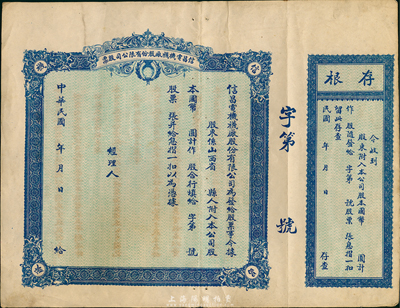 信昌電機機械廠股份有限公司股票
信昌電機機械廠股份有限公司為發給股票事今據
股東係山西省 縣人附入本公司股
本國幣 圓計作 股合行填給 字第 號
股票 張并給息摺一扣以為憑據
經理人
中華民國 年 月 日 給
字第 號
存根
今收到
股東附入本公司股本國幣 圓計
作 股週發給 字第 號股票 張息摺一扣
留此存查
民國 年 月 日 存查